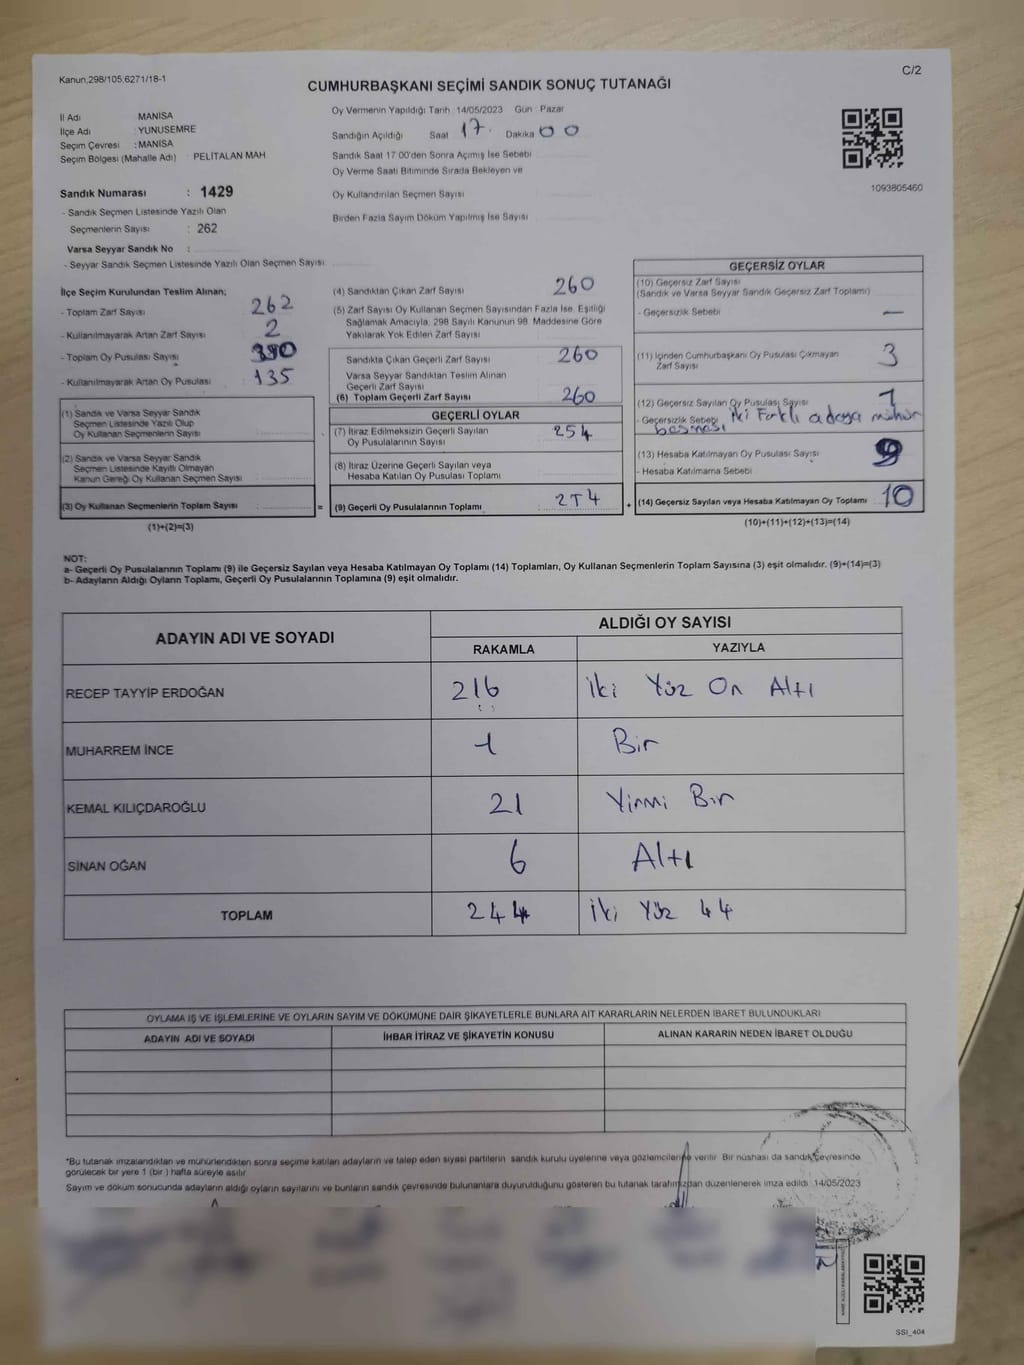 Kanun.298/105,6271/18-1
C/2
CUMHURBAŞKANI SEÇİMİ SANDIK SONUÇ TUTANAĞI
İl Adı MANİSA
İlçe Adı : YUNUSEMRE
Seçim Çevresi : MANİSA
Seçim Bölgesi (Mahalle Adı) : PELİTALAN MAH
Sandık Numarası : 1429
- Sandık Seçmen Listesinde Yazılı Olan
Seçmenlerin Sayısı : 262
Varsa Seyyar Sandık No :
- Seyyar Sandık Seçmen Listesinde Yazılı Olan Seçmen Sayısı
Oy Vermenin Yapıldığı Tarih 14/05/2023 Gün : Pazar
Sandığın Açıldığı Saat 17. Dakika 00
Sandık Saat 17:00'den Sonra Açımış İse Sebebi
Oy Verme Saati Bitiminde Sırada Bekleyen ve
Oy Kullandırılan Seçmen Sayısı
Birden Fazla Sayım Döküm Yapılmış İse Sayısı
1093805460
İlçe Seçim Kurulundan Teslim Alınan;
- Toplam Zarf Sayısı 262
- Kullanılmayarak Artan Zarf Sayısı 2
- Toplam Oy Pusulası Sayısı 390
- Kullanılmayarak Artan Oy Pusulası 135
(1) Sandık ve Varsa Seyyar Sandık
Seçmen Listesinde Yazılı Olup
Oy Kullanan Seçmenlerin Sayısı
(2) Sandık ve Varsa Seyyar Sandık
Seçmen Listesinde Kayıtlı Olmayan
Kanun Gereği Oy Kullanan Seçmen Sayısı
(3) Oy Kullanan Seçmenlerin Toplam Sayısı =
(1)+(2)=(3)
(4) Sandıktan Çıkan Zarf Sayısı 260
(5) Zarf Sayısı Oy Kullanan Seçmen Sayısından Fazla İse, Eşitliği
Sağlamak Amacıyla; 298 Sayılı Kanunun 98. Maddesine Göre
Yakılarak Yok Edilen Zarf Sayısı
Sandıkta Çıkan Geçerli Zarf Sayısı 260
Varsa Seyyar Sandıktan Teslim Alınan
Geçerli Zarf Sayısı
(6) Toplam Geçerli Zarf Sayısı 260
GEÇERLİ OYLAR
(7) İtiraz Edilmeksizin Geçerli Sayılan
Oy Pusulalarının Sayısı 254
(8) İtiraz Üzerine Geçerli Sayılan veya
Hesaba Katılan Oy Pusulası Toplamı
(9) Geçerli Oy Pusulalarının Toplamı 254 +
GEÇERSİZ OYLAR
(10) Geçersiz Zarf Sayısı
(Sandık ve Varsa Seyyar Sandık Geçersiz Zarf Toplamı)
- Geçersizlik Sebebi —
(11) İçinden Cumhurbaşkanı Oy Pusulası Çıkmayan
Zarf Sayısı 3
(12) Geçersiz Sayılan Oy Pusulası Sayısı 1
- Geçersizlik Sebebi İki Farklı adaya mühür
basması
(13) Hesaba Katılmayan Oy Pusulası Sayısı 9
- Hesaba Katılmama Sebebi
(14) Geçersiz Sayılan veya Hesaba Katılmayan Oy Toplamı 10
(10)+(11)+(12)+(13)=(14)
NOT:
a- Geçerli Oy Pusulalarının Toplamı (9) ile Geçersiz Sayılan veya Hesaba Katılmayan Oy Toplamı (14) Toplamları, Oy Kullanan Seçmenlerin Toplam Sayısına (3) eşit olmalıdır. (9)+(14)=(3)
b- Adayların Aldığı Oyların Toplamı, Geçerli Oy Pusulalarının Toplamına (9) eşit olmalıdır.
ADAYIN ADI VE SOYADI
ALDIĞI OY SAYISI
RAKAMLA YAZIYLA
RECEP TAYYİP ERDOĞAN 216 İki Yüz On Altı
MUHARREM İNCE 1 Bir
KEMAL KILIÇDAROĞLU 21 Yirmi Bir
SİNAN OĞAN 6 Altı
TOPLAM 244 İki Yüz 44
OYLAMA İŞ VE İŞLEMLERİNE VE OYLARIN SAYIM VE DÖKÜMÜNE DAİR ŞİKAYETLERLE BUNLARA AİT KARARLARIN NELERDEN İBARET BULUNDUKLARI
ADAYIN ADI VE SOYADI İHBAR İTİRAZ VE ŞİKAYETİN KONUSU ALINAN KARARIN NEDEN İBARET OLDUĞU
*Bu tutanak imzalandıktan ve mühürlendikten sonra seçime katılan adayların ve talep eden siyasi partilerin sandık kurulu üyelerine veya gözlemcilerine verilir. Bir nüshası da sandık çevresinde
görülecek bir yere 1 (bir) hafta süreyle asılır.
Sayım ve döküm sonucunda adayların aldığı oyların sayılarını ve bunların sandık çevresinde bulunanlara duyurulduğunu gösteren bu tutanak tarafımızdan düzenlenerek imza edildi. 14/05/2023
SSI_404